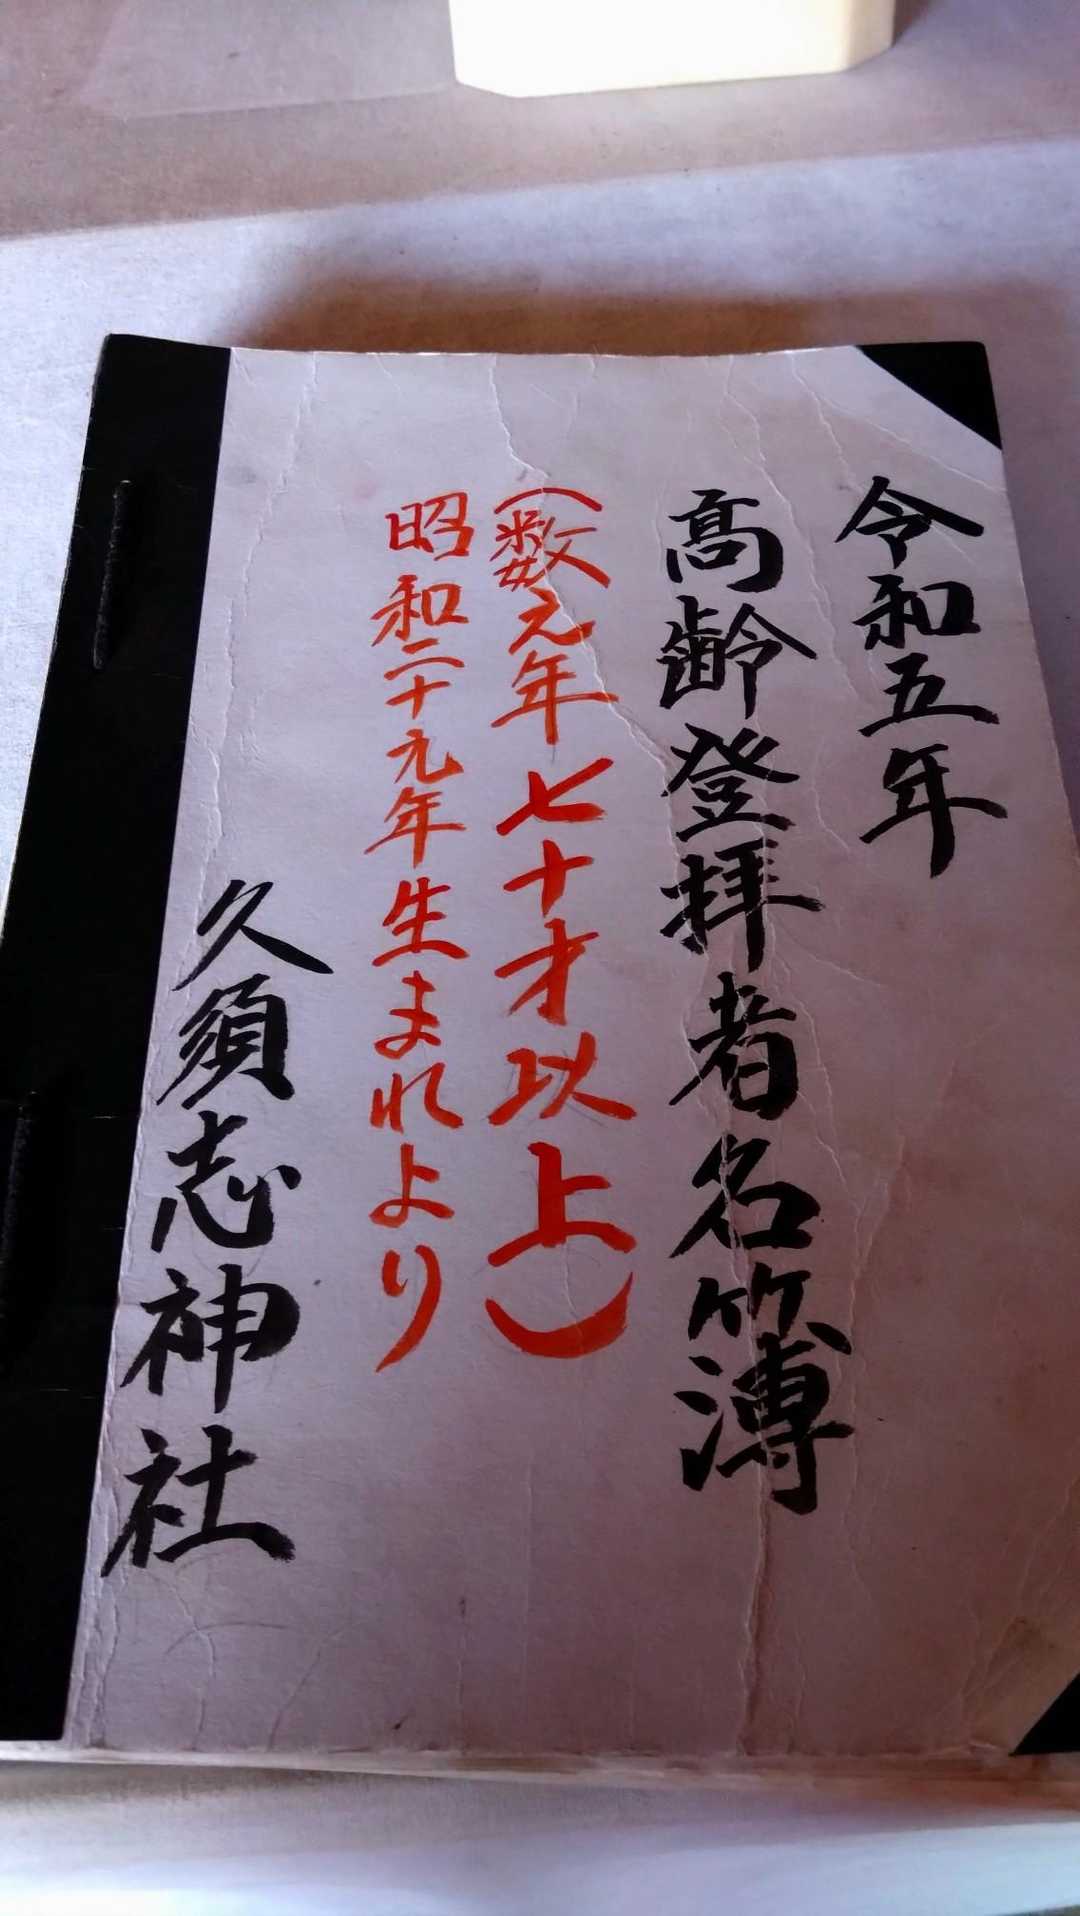 令和五年
高齢登拝者名簿
（数え年七十才以上）
昭和二十九年生まれより
久須志神社